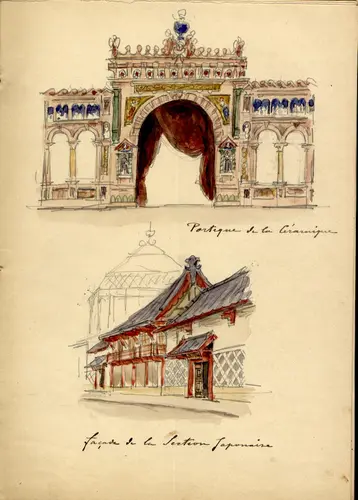 Portique de la Céramique
façade de la Section Japonaise